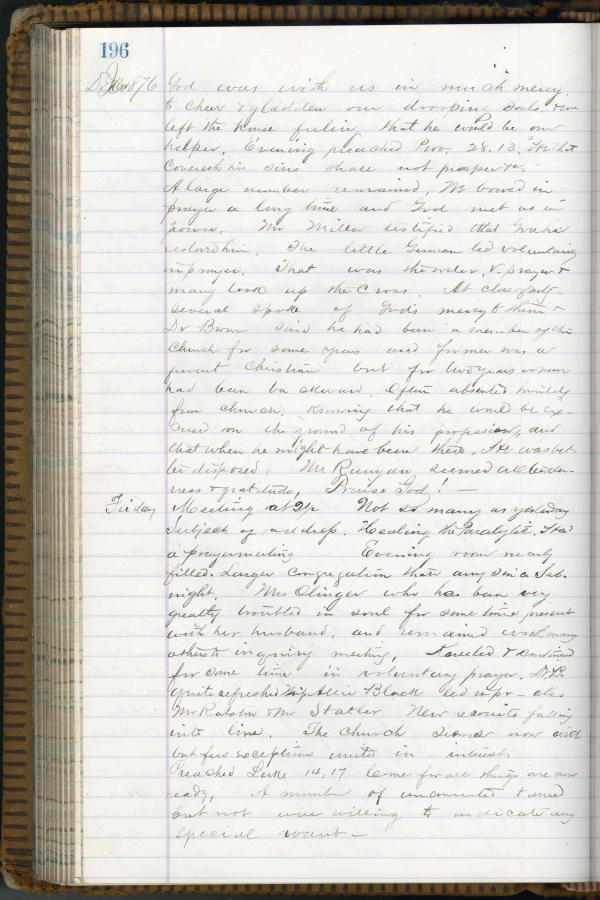 196
1876 God was with us in much mercy
to cheer & gladden our drooping souls. & we
left the house feeling that he would be our
helper. Evening preached Prov. 28.13. He that
covereth his sins shall not prosper &c.
A large number remained. We bowed in
prayer a long time and God met us in
power. Mr Miller testified that God has
restored him. The little German led voluntarily
in prayer. That was the order, V. prayer &
many took up the Cross. At close
several spoke of God's mercy to them &
Dr Brown said he had been a member of the
Church for some years and former was a
fervent Christian but for two years or more
had been backward. Often absented himself
from church, knowing that he would be ex-
cused on the ground of his profession, and
that when he might have been there. He was bet-
ter disposed. Mr Runyan seemed all tender-
ness & gratitude, Praise God! —
Friday Meeting at 2 Not so many as yesterday
Subject of address. Healing the Paralytic. Had
a prayermeeting Evening room nearly
filled. Larger congregation than any since Sab.
night. Mrs Olinger who has been very
greatly troubled in soul for some time present
with her husband, and remained with many
others in inquiry meeting, Kneeled & continued
for some time in voluntary prayer.
Quite refreshed Allie Black led in pr- also
Mr Ralston & Mr Statler. New recruits falling
into line. The church seems now with
but few exceptions united in interest.
Preached Luke 14,17 Come for all things are now
ready, A number of unconverted
but not were willing to indicate any
special want —